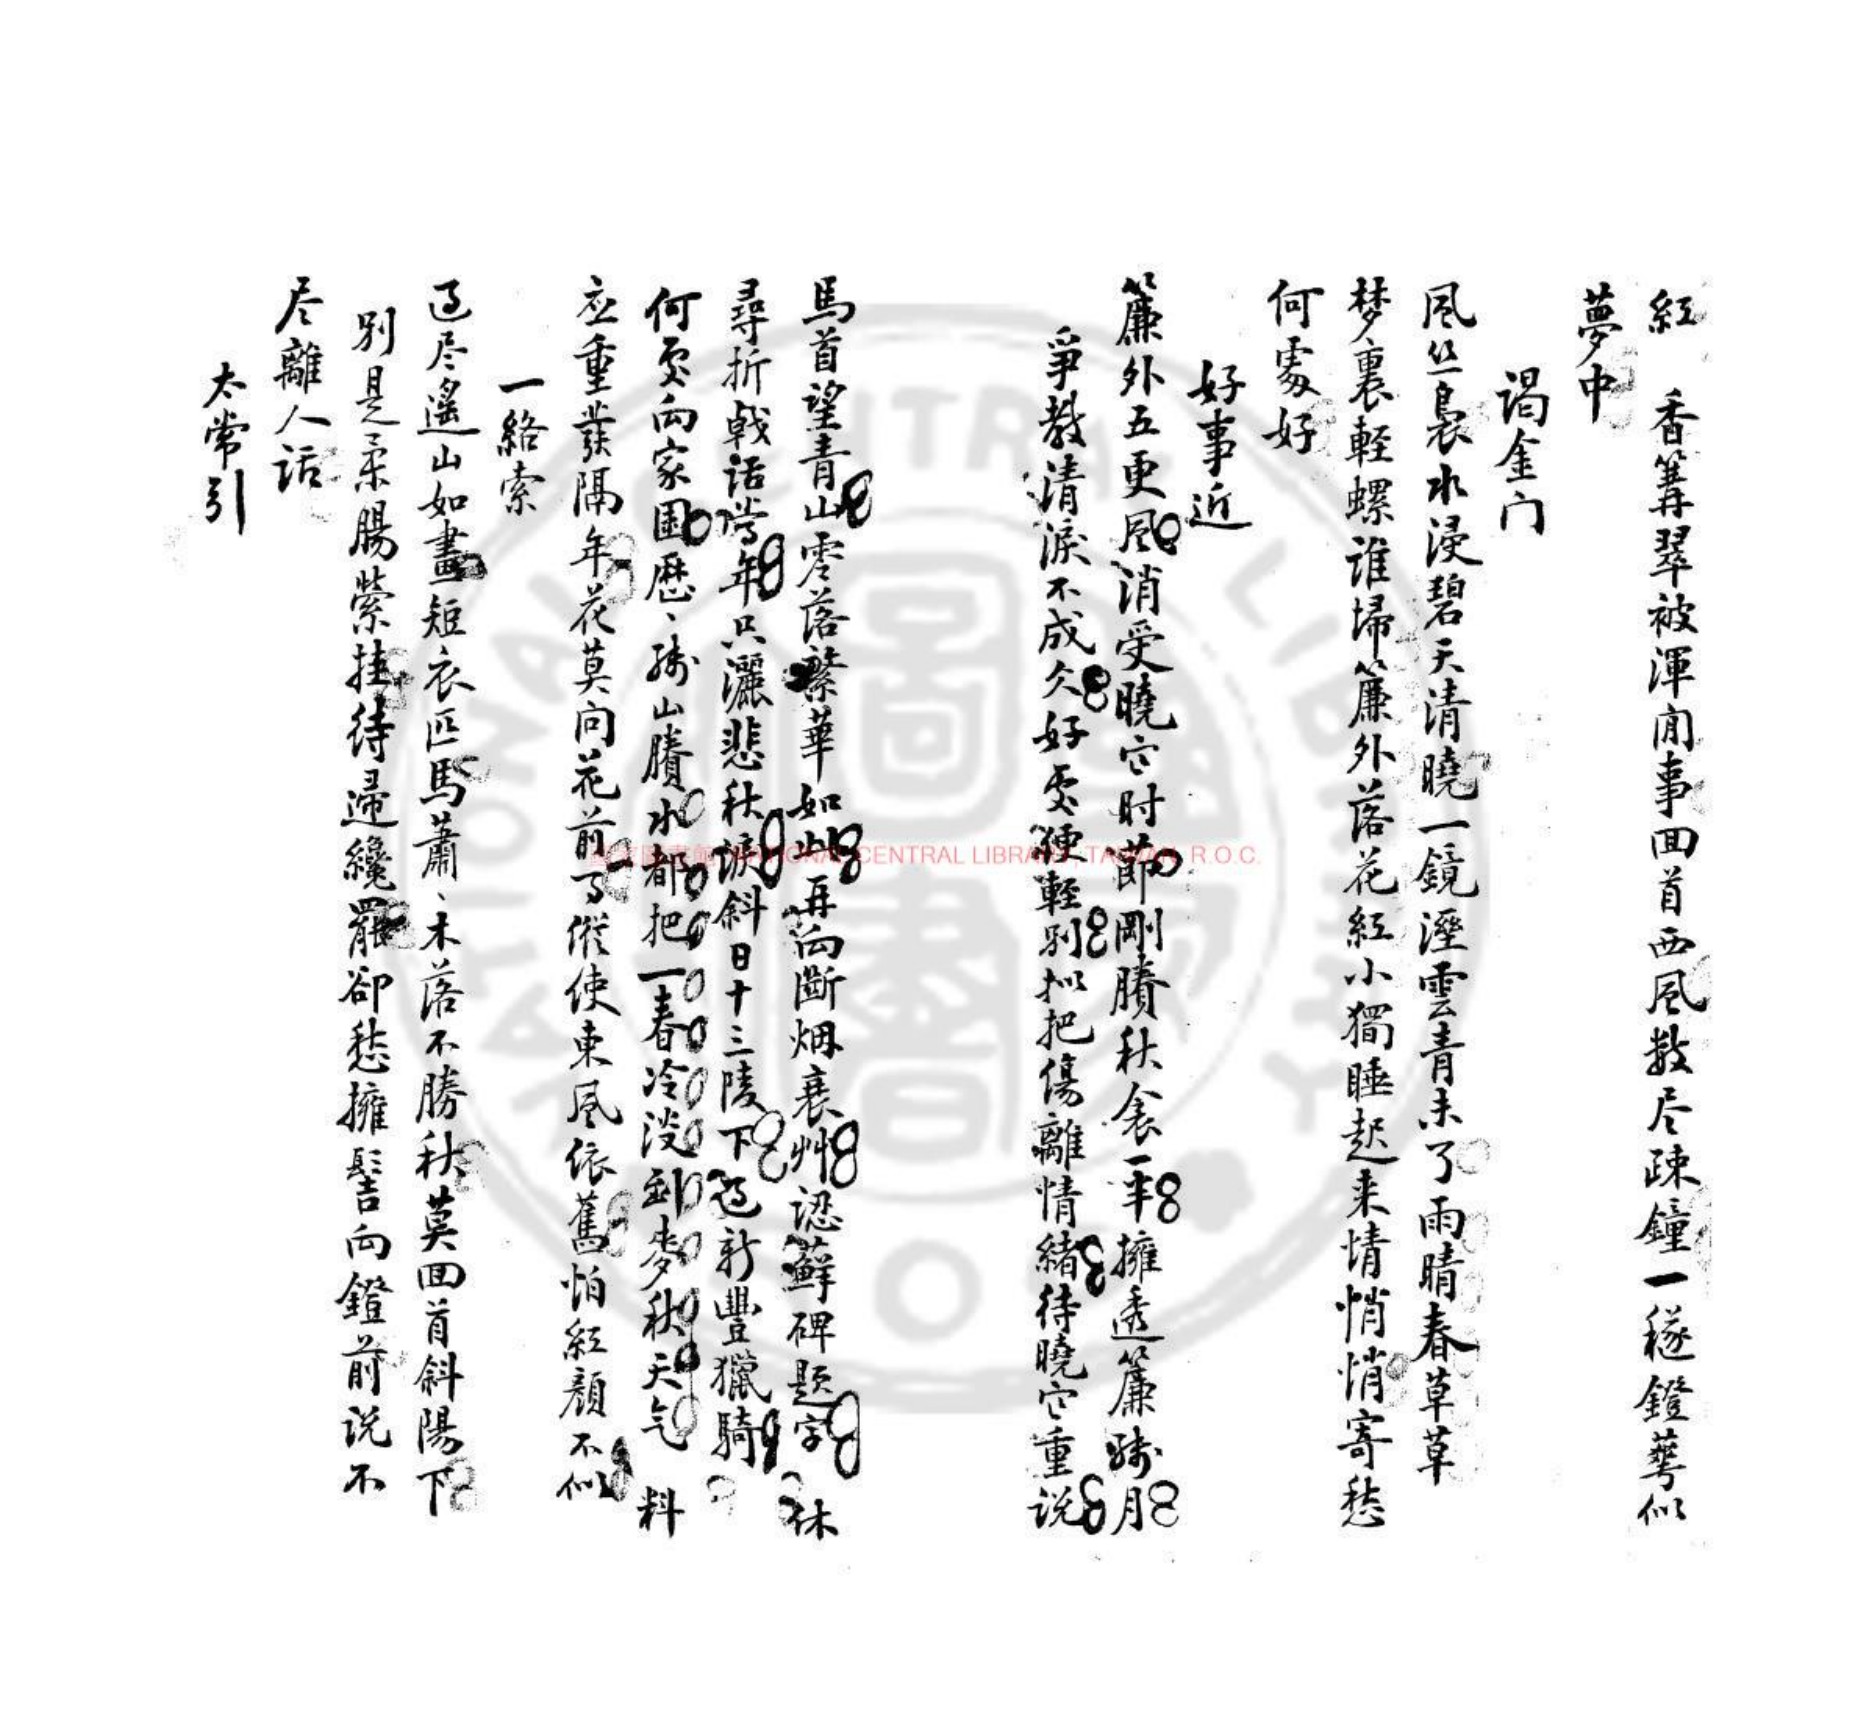 紅　香篝翠被渾閒事回首西風數尽疎鐘一穟鐙萼似
夢中
謁金门
風丝裊水浸碧天清曉一鏡溼雲青未了雨晴春草草
梦裏軽螺谁掃簾外落花紅小獨睡起来情悄悄寄愁
何處好
好事近
簾外五更風消受曉寒时節剛賸秋衾一半擁透簾残月
爭教清淚不成久好处便軽别拟把傷離情緒待曉寒重说
馬首望青山零落繁華如此再向斷烟衰艸認蘚碑題字　休
尋折戟话當年只灑悲秋淚斜日十三陵下过新豐獵騎
何处向家園歷、残山賸水都把一春冷淡到麦秋天气　料
应重發隔年花莫向花前　縱使東風依舊怕紅顏不似
一絡索
过尽遥山如畫短衣匹馬蕭、木落不勝秋莫回首斜陽下
别是柔腸縈挂待還纔罷卻愁擁髻向鐙前说不
尽離人话
太常引
國家圖書館 NATIONAL CENTRAL LIBRARY, TAIWAN, R.O.C.